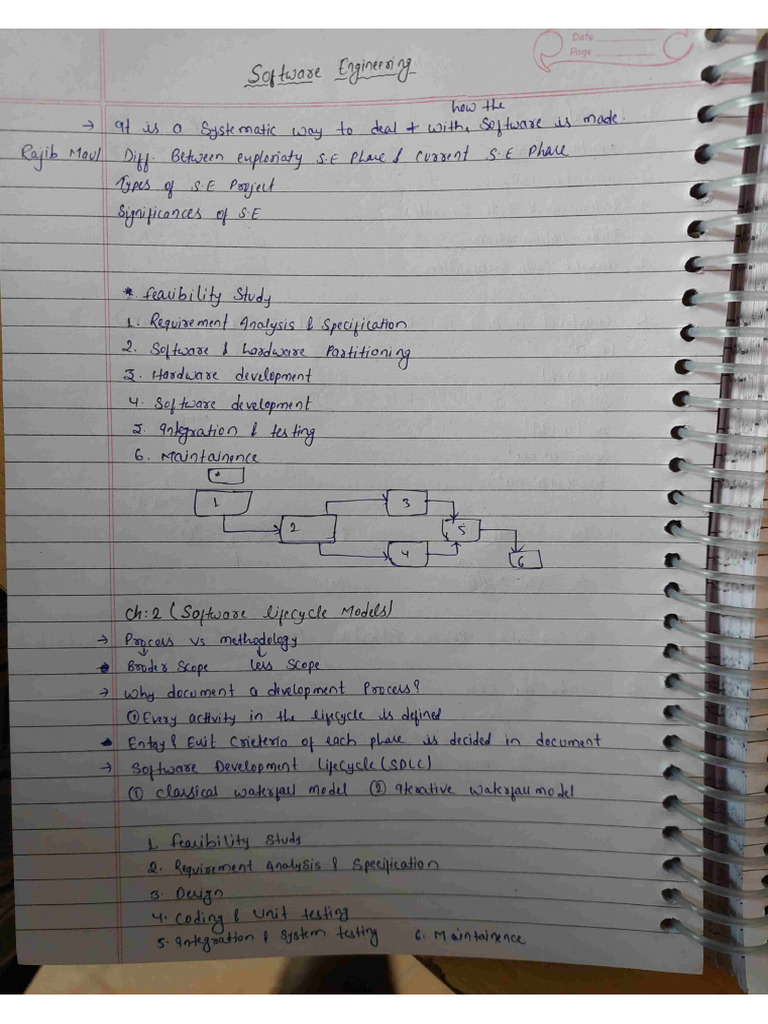 Date
Page
Software Engineering
how the
→ It is a Systematic way to deal with, Software is made.
Rajib Mall Diff. Between euploriaty S.E Phase & Current S.E Phase
Types of S.E Project
Significances of S.E
* Feasibility Study
1. Requirement Analysis & Specification
2. Software & Hardware Partitioning
3. Hardware development
4. Software development
5. Integration & testing
6. Maintainence
*
1
2
3
4
5
6
Ch:2 (Software lifecycle Models)
→ Process vs methodology
↓ ↓
• Broder Scope less Scope
→ Why document a development Process?
① Every activity in the lifecycle is defined
• Entry & Exit Crieteria of each phase is decided in document
→ Software Development Lifecycle (SDLC)
① Classical waterfall model ② Iterative waterfall model
1. Feasibility Study
2. Requirement Analysis & Specification
3. Design
4. Coding & Unit testing
5. Integration & System testing 6. Maintainence